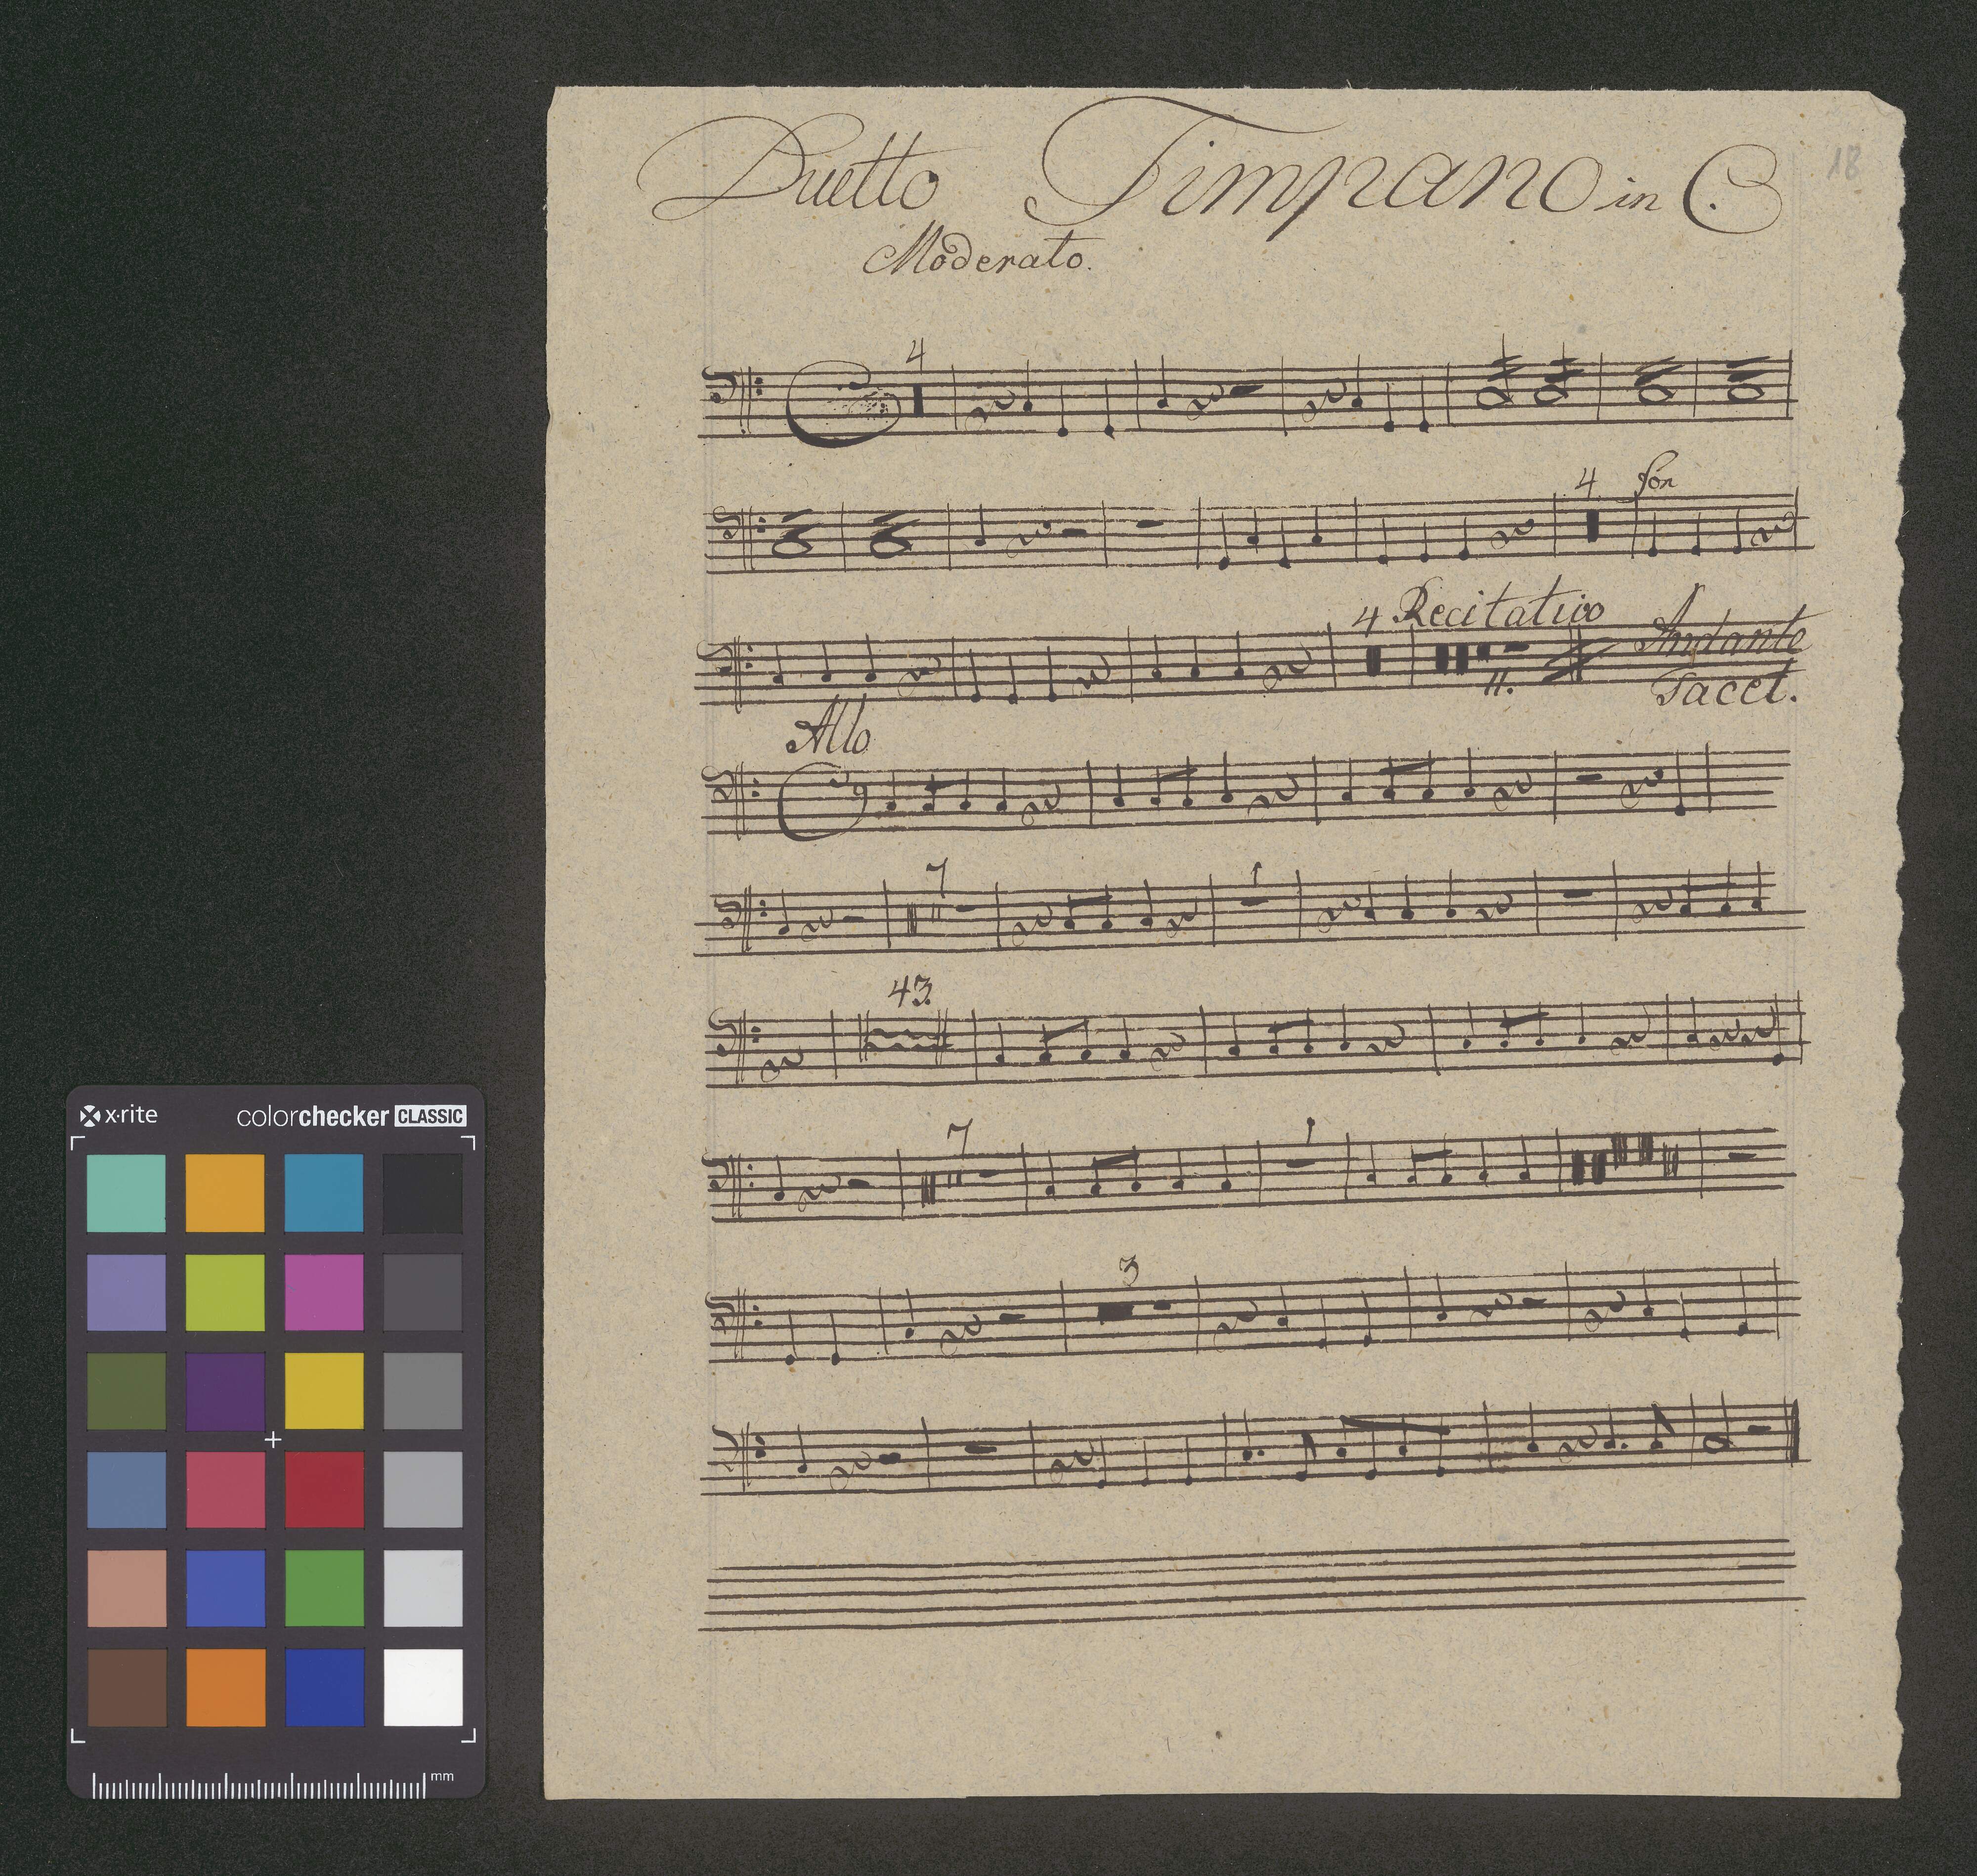 Duetto Timpano in C. 18
Moderato.
4
4 for
4 Recitativo Andante
11. Tacet.
Allo
7 1
43
7 1
3
x·rite colorchecker CLASSIC
mm